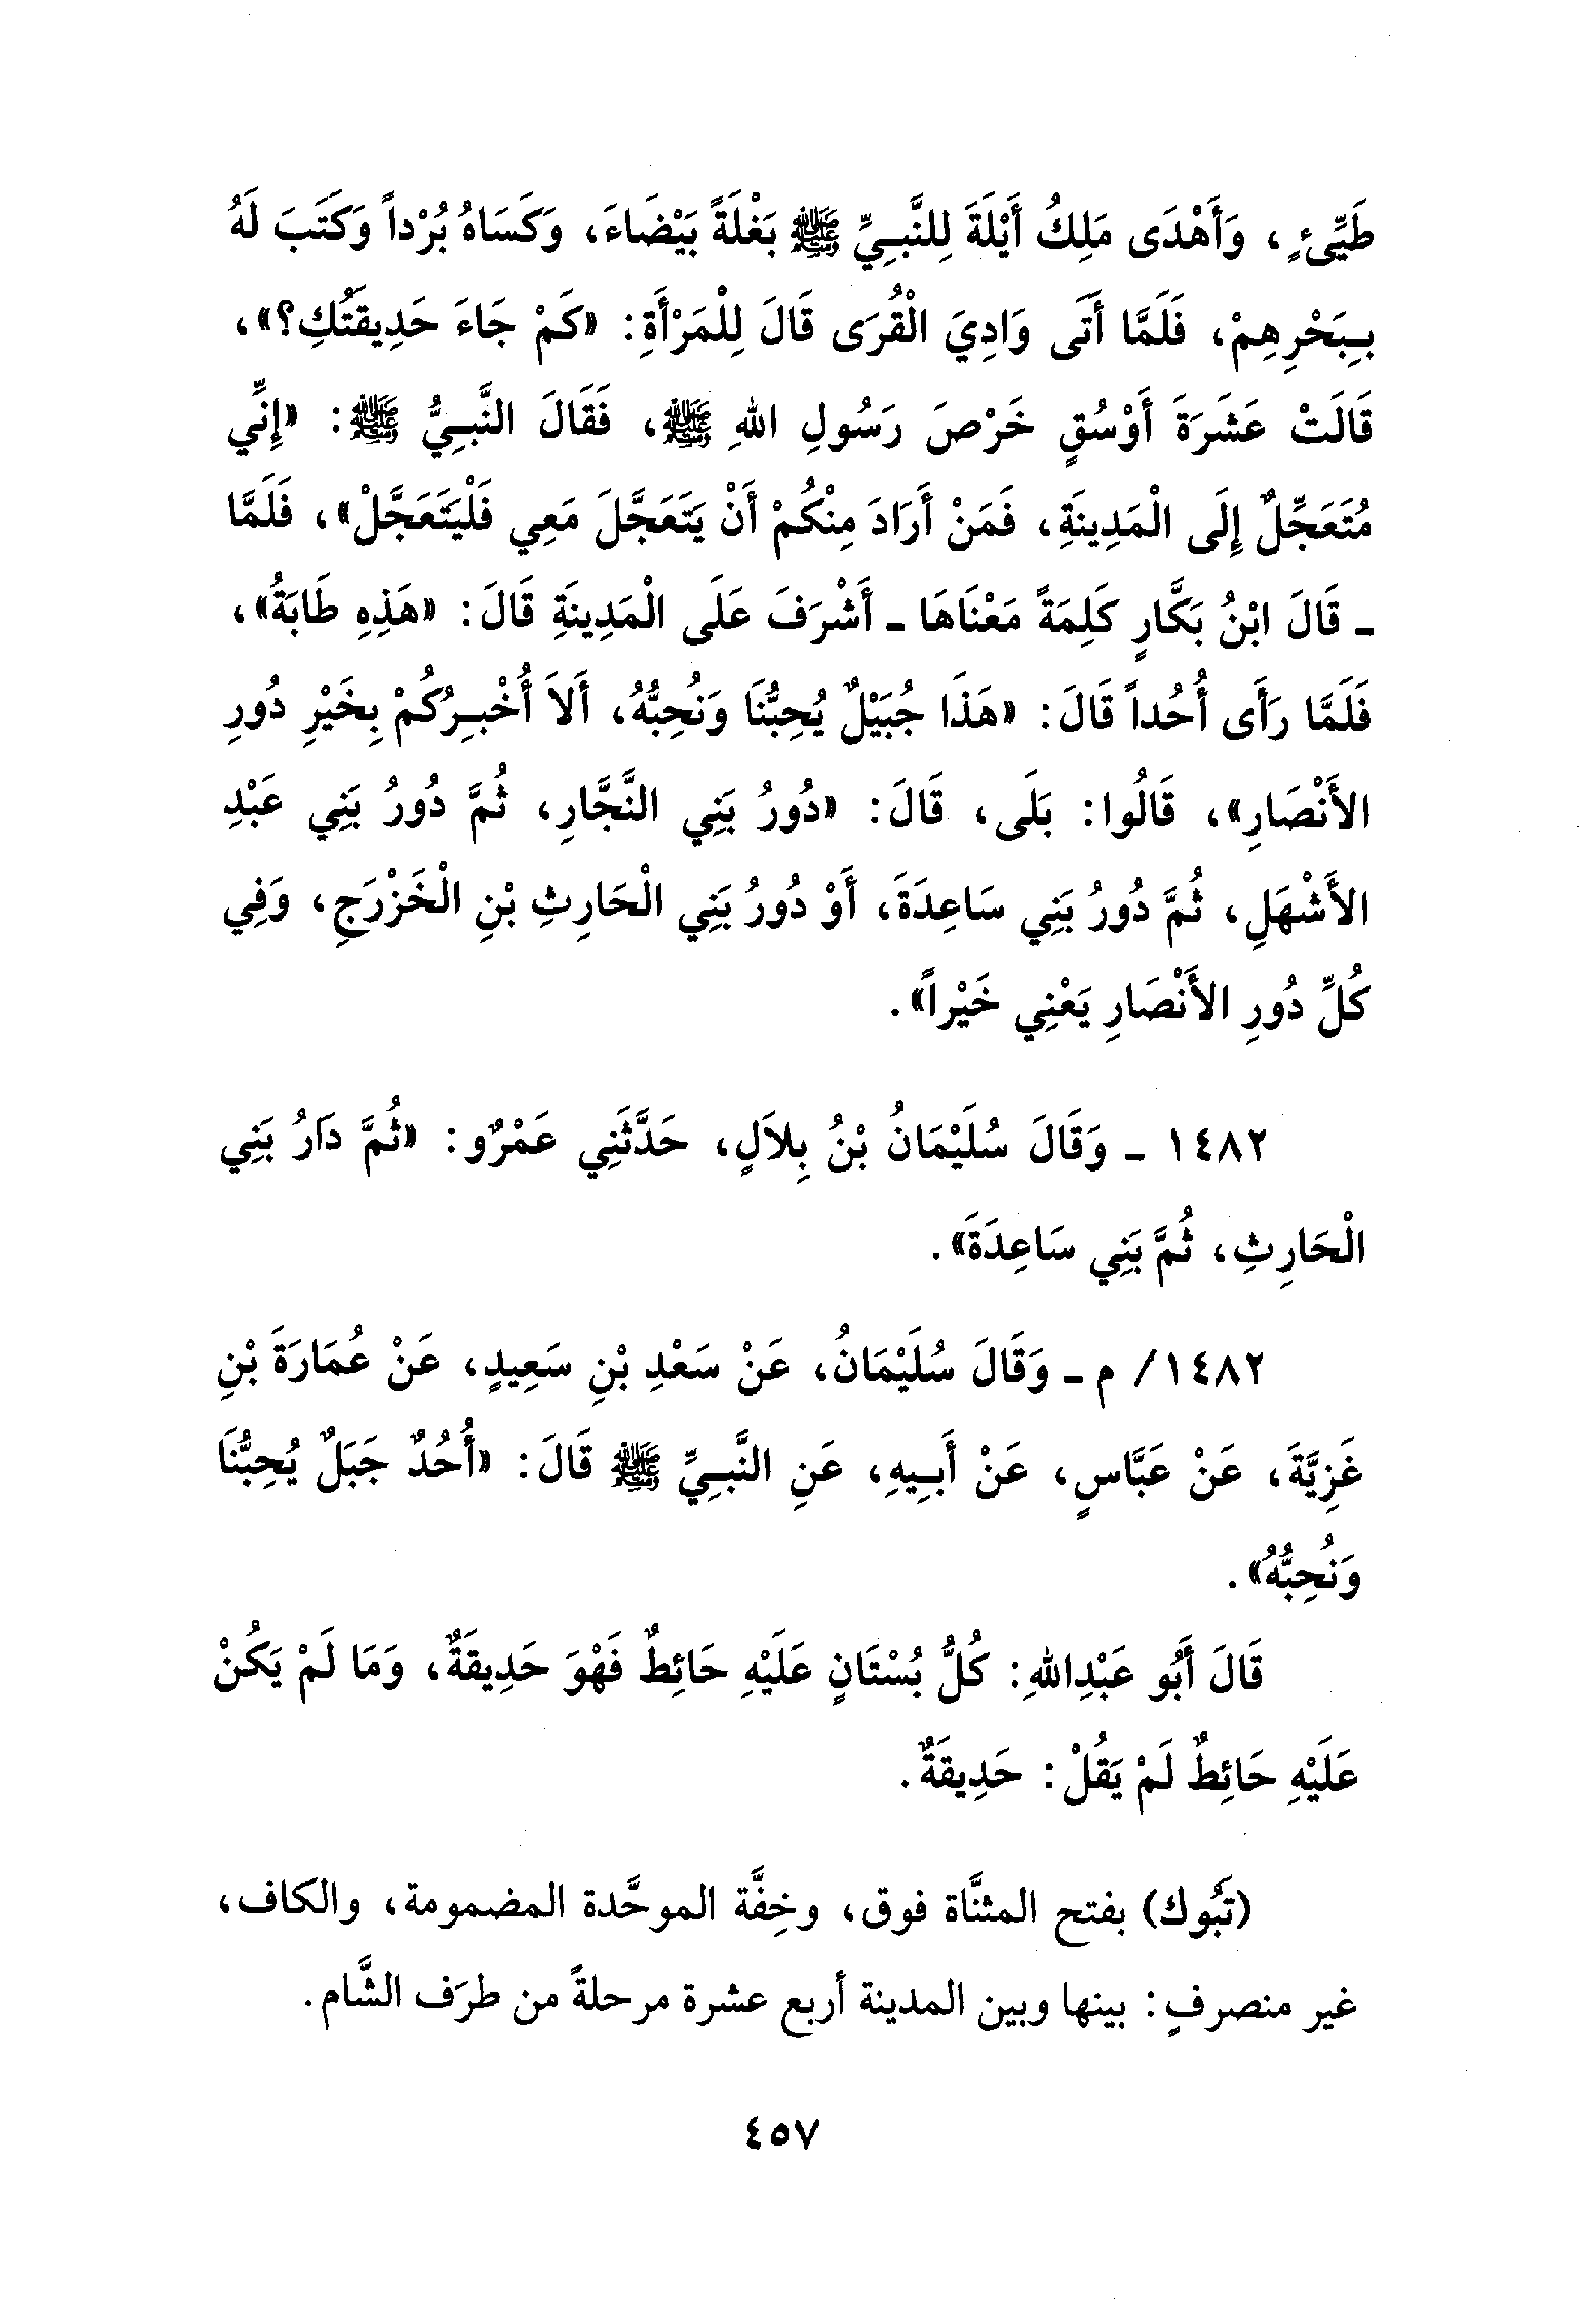 طَيِّىءٍ، وَأَهْدَى مَلِكُ أَيْلَةَ لِلنَّبِيِّ ﷺ بَغْلَةً بَيْضَاءَ، وَكَسَاهُ بُرْداً وَكَتَبَ لَهُ
بِبَحْرِهِمْ، فَلَمَّا أَتَى وَادِيَ الْقُرَى قَالَ لِلْمَرْأَةِ: «كَمْ جَاءَ حَدِيقَتُكِ؟»،
قَالَتْ عَشَرَةَ أَوْسُقٍ خَرْصَ رَسُولِ اللهِ ﷺ، فَقَالَ النَّبِيُّ ﷺ: «إِنِّي
مُتَعَجِّلٌ إِلَى الْمَدِينَةِ، فَمَنْ أَرَادَ مِنْكُمْ أَنْ يَتَعَجَّلَ مَعِي فَلْيَتَعَجَّلْ»، فَلَمَّا
ـ قَالَ ابْنُ بَكَّارٍ كَلِمَةً مَعْنَاهَا ـ أَشْرَفَ عَلَى الْمَدِينَةِ قَالَ: «هَذِهِ طَابَةُ»،
فَلَمَّا رَأَى أُحُداً قَالَ: «هَذَا جُبَيْلٌ يُحِبُّنَا وَنُحِبُّهُ، أَلاَ أُخْبِرُكُمْ بِخَيْرِ دُورِ
الأَنْصَارِ»، قَالُوا: بَلَى، قَالَ: «دُورُ بَنِي النَّجَّارِ، ثُمَّ دُورُ بَنِي عَبْدِ
الأَشْهَلِ، ثُمَّ دُورُ بَنِي سَاعِدَةَ، أَوْ دُورُ بَنِي الْحَارِثِ بْنِ الْخَزْرَجِ، وَفِي
كُلِّ دُورِ الأَنْصَارِ يَعْنِي خَيْراً».
١٤٨٢ ـ وَقَالَ سُلَيْمَانُ بْنُ بِلاَلٍ، حَدَّثَنِي عَمْرٌو: «ثُمَّ دَارُ بَنِي
الْحَارِثِ، ثُمَّ بَنِي سَاعِدَةَ».
١٤٨٢/ م ـ وَقَالَ سُلَيْمَانُ، عَنْ سَعْدِ بْنِ سَعِيدٍ، عَنْ عُمَارَةَ بْنِ
غَزِيَّةَ، عَنْ عَبَّاسٍ، عَنْ أَبِيهِ، عَنِ النَّبِيِّ ﷺ قَالَ: «أُحُدٌ جَبَلٌ يُحِبُّنَا
وَنُحِبُّهُ».
قَالَ أَبُو عَبْدِاللهِ: كُلُّ بُسْتَانٍ عَلَيْهِ حَائِطٌ فَهْوَ حَدِيقَةٌ، وَمَا لَمْ يَكُنْ
عَلَيْهِ حَائِطٌ لَمْ يَقُلْ: حَدِيقَةٌ.
(تَبُوك) بفتح المثنَّاة فوق، وخِفَّة الموحَّدة المضمومة، والكاف،
غير منصرفٍ: بينها وبين المدينة أربع عشرة مرحلةً من طرَف الشَّام.
٤٥٧